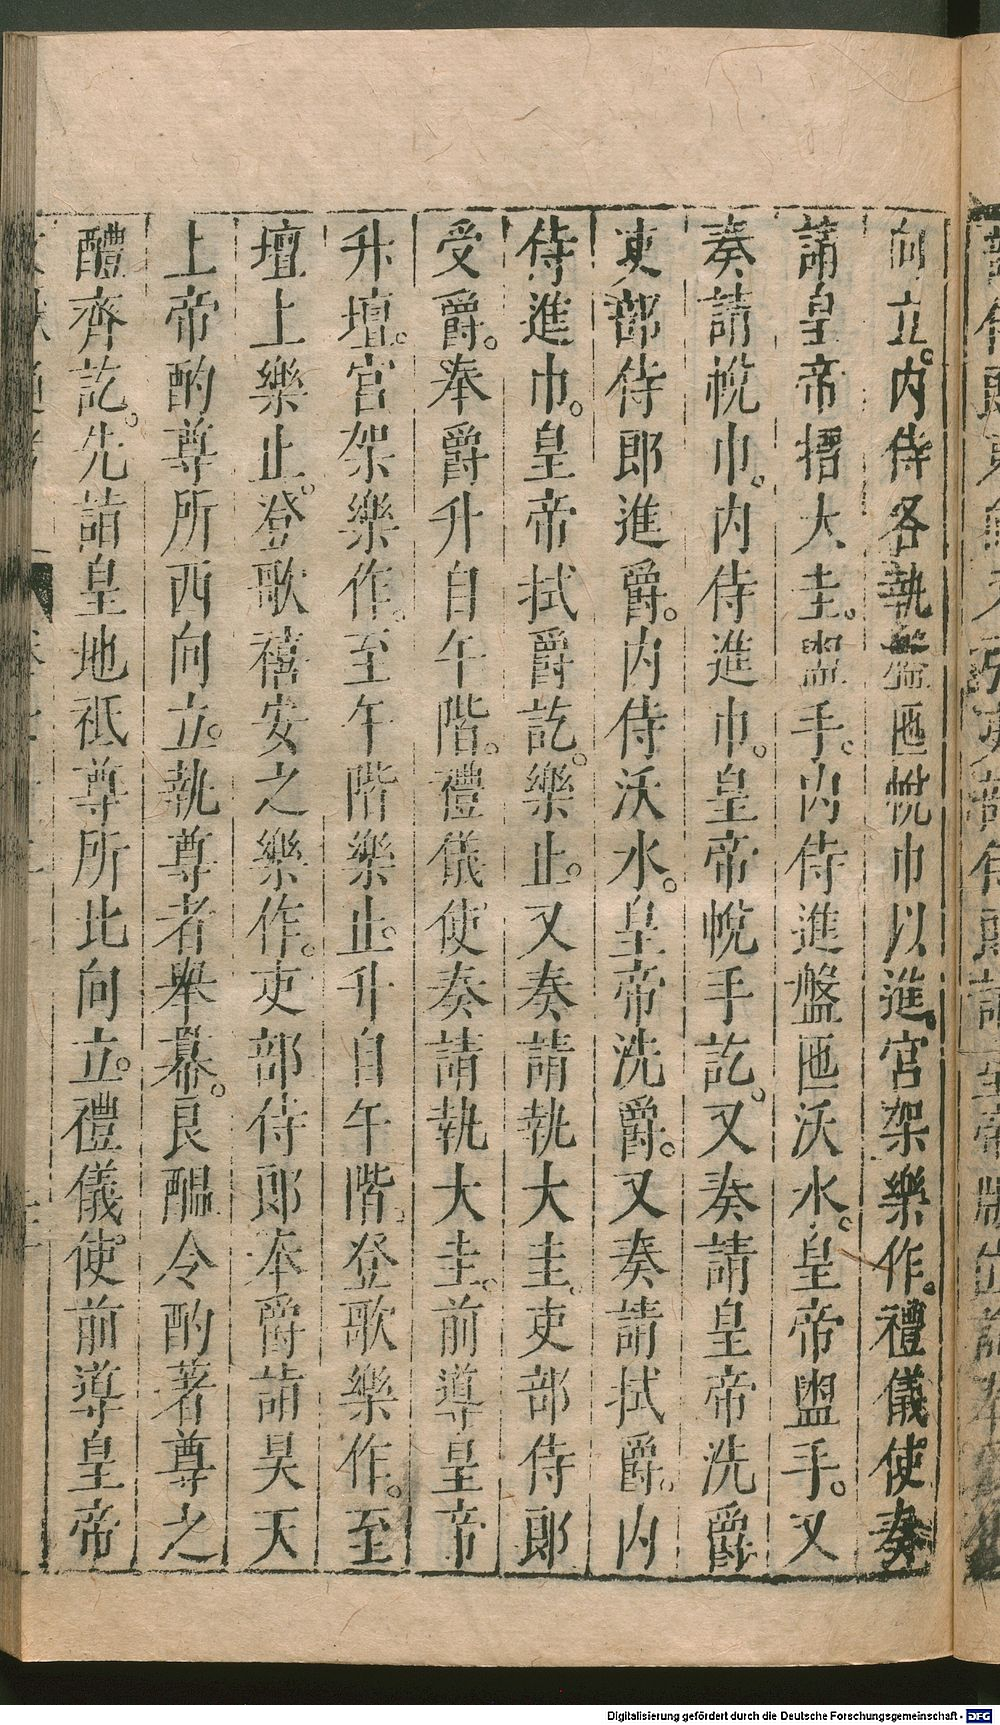 向立。内侍各執盤匜帨巾以進。宮架樂作。禮儀使奏
請皇帝搢大圭。盥手。内侍進盤匜沃水。皇帝盥手。又
奏請帨巾。内侍進巾。皇帝帨手訖。又奏請皇帝洗爵
吏部侍郎進爵。内侍沃水。皇帝洗爵。又奏請拭爵。内
侍進巾。皇帝拭爵訖。樂止。又奏請執大圭。吏部侍郎
受爵。奉爵升自午階。禮儀使奏請執大圭。前導皇帝
升壇。宮架樂作。至午階樂止。升自午階。登歌樂作。至
壇上樂止。登歌禧安之樂作。吏部侍郎奉爵詣昊天
上帝酌尊所西向立。執尊者舉冪。良醖令酌著尊之
醴齊訖。先詣皇地祇尊所北向立。禮儀使前導皇帝
Digitalisierung gefördert durch die Deutsche Forschungsgemeinschaft - DFG